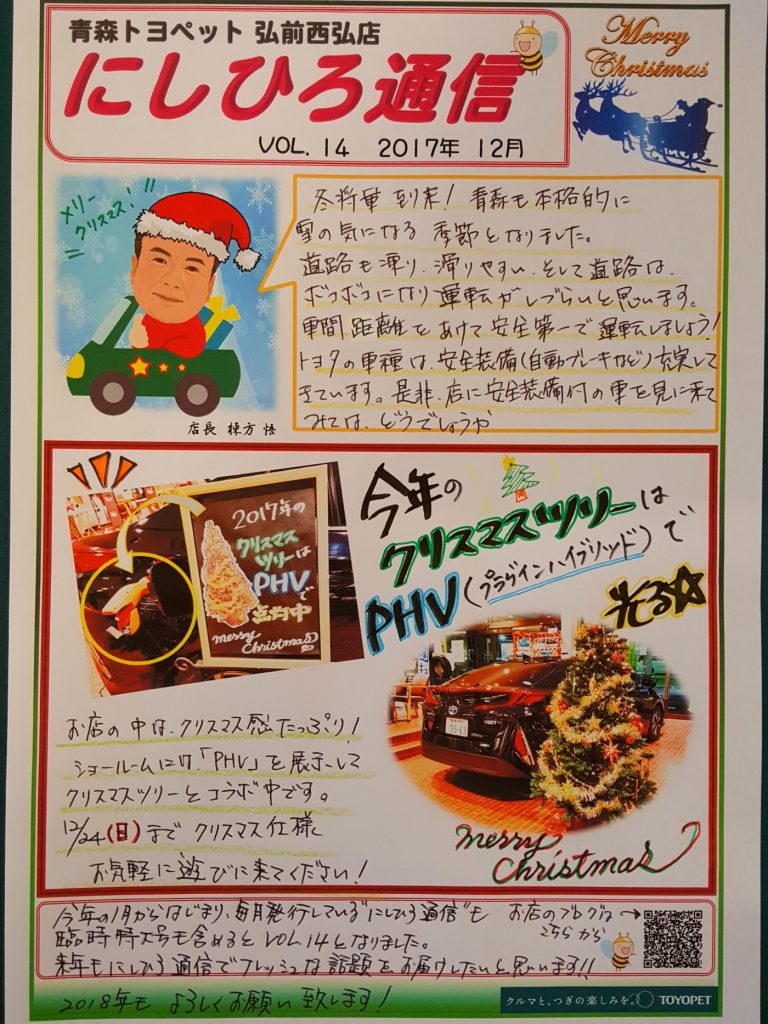 青森トヨペット 弘前西弘店
にしひろ通信
VOL.14 2017年 12月
Merry
Christmas
メリー
クリスマス!!
店長 棟方 悟
冬将軍 到来! 青森も本格的に
雪の気になる 季節となりました。
道路も凍り、滑りやすい、そして道路は、
ボコボコになり運転がしづらいと思います。
車間距離をあけて安全第一で運転しましょう!
トヨタの車種は、安全装備(自動ブレーキなど)充実して
きています。是非、店に安全装備付の車を見に来て
みては、どうでしょうか
2017年の
クリスマス
ツリーは
PHVで
点灯中
merry
Christmas
今年の
クリスマスツリーは
PHV(プラグインハイブリッド)で
光る☆
55-63
お店の中は、クリスマス感たっぷり!
ショールームには、「PHV」を展示して
クリスマスツリーとコラボ中です。
12/24(日)まで クリスマス仕様に
お気軽に遊びに来てください!
merry
Christmas
今年の1月からはじまり、毎月発行している"にしひろ通信"も
臨時特大号も含めるとVOL.14となりました。
来年もにしひろ通信でフレッシュな話題をお届けしたいと思います!!
お店のブログは→
こちらから
2018年も よろしくお願い致します!
クルマと、つぎの楽しみを。 TOYOPET